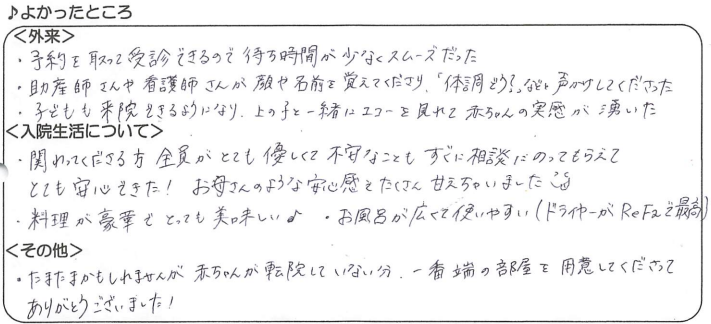 ♪よかったところ
＜外来＞
・予約を取って受診できるので待ち時間が少なくスムーズだった
・助産師さんや看護師さんが顔や名前を覚えてくださり、「体調どう？」など声かけしてくださった
・子どもも来院できるようになり、上の子と一緒にエコーを見れて赤ちゃんの実感が湧いた
＜入院生活について＞
・関わってくださる方全員がとても優しくて不安なこともすぐに相談にのってもらえて
とても安心できた！ お母さんのような安心感でたくさん甘えちゃいました
・料理が豪華でとっても美味しい♪ ・お風呂が広くて使いやすい（ドライヤーがReFaで最高）
＜その他＞
・たまたまかもしれませんが赤ちゃんが転院していない分、一番端の部屋を用意してくださって
ありがとうございました！